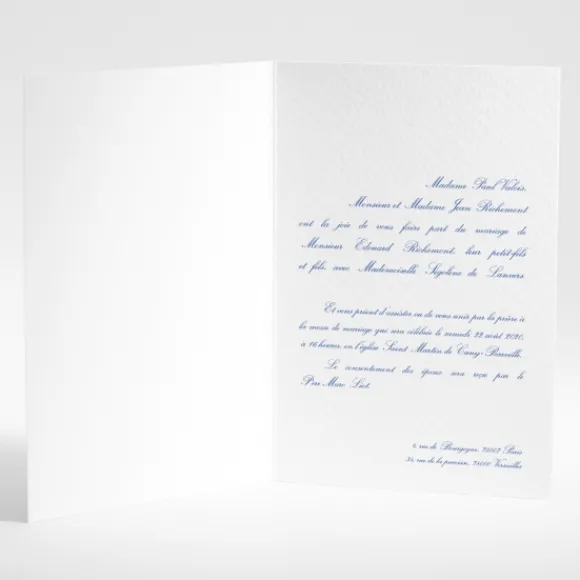 Madame Paul Valois,
Monsieur et Madame Jean Richemont
ont la joie de vous faire part du mariage de
Monsieur Edouard Richemont, leur petit-fils
et fils, avec Mademoiselle Ségolène de Lanvers.
Et vous prient d'assister ou de vous unir par la prière à
la messe de mariage qui sera célébrée le samedi 22 août 2020,
à 16 heures, en l'église Saint Martin de Cany-Barville.
Le consentement des époux sera reçu par le
Père Marc Liot.
6, rue de Bourgogne, 75007 Paris
34, rue de la paroisse, 78000 Versailles